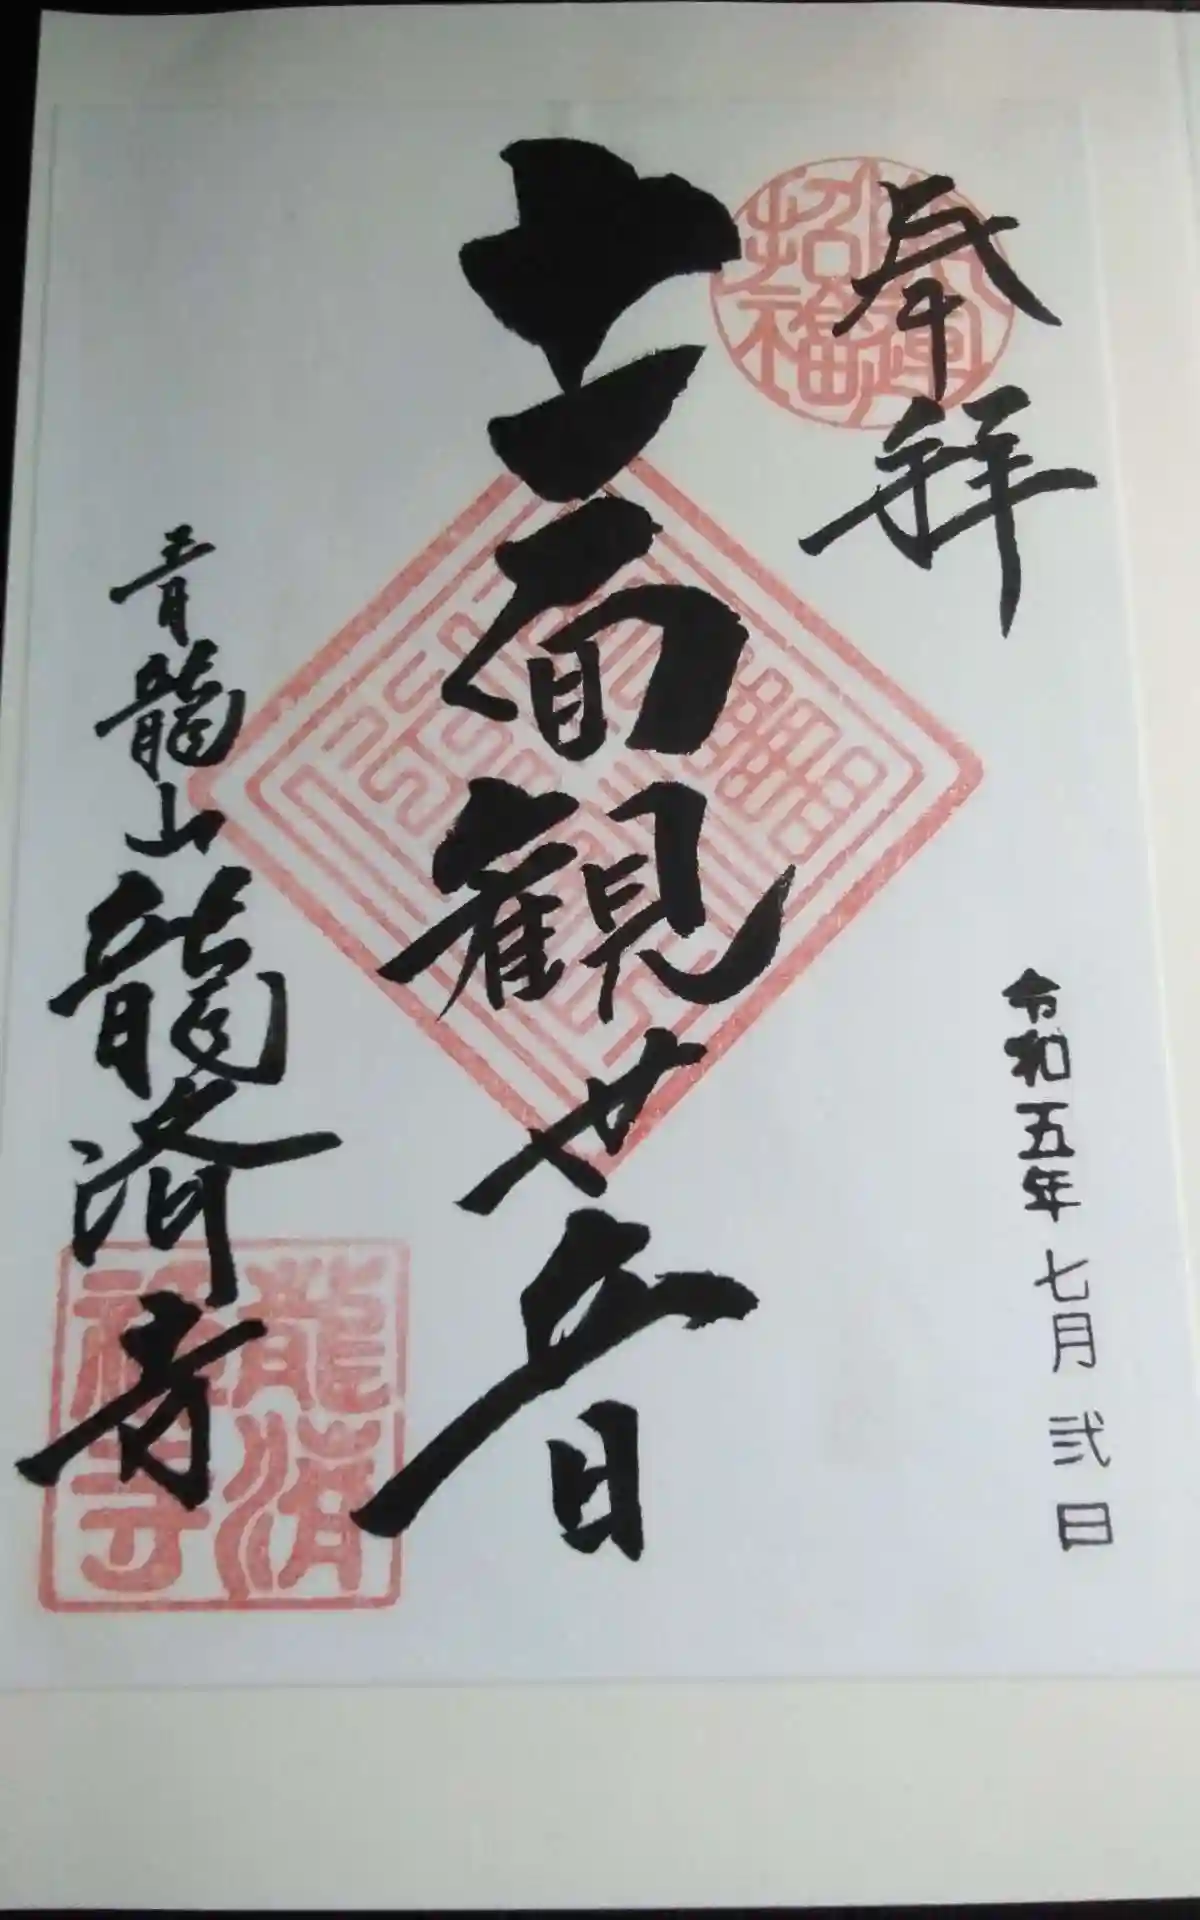 奉拝
令和五年七月弐日
十一面観世音
青龍山龍済寺
開運招福
龍済禅寺